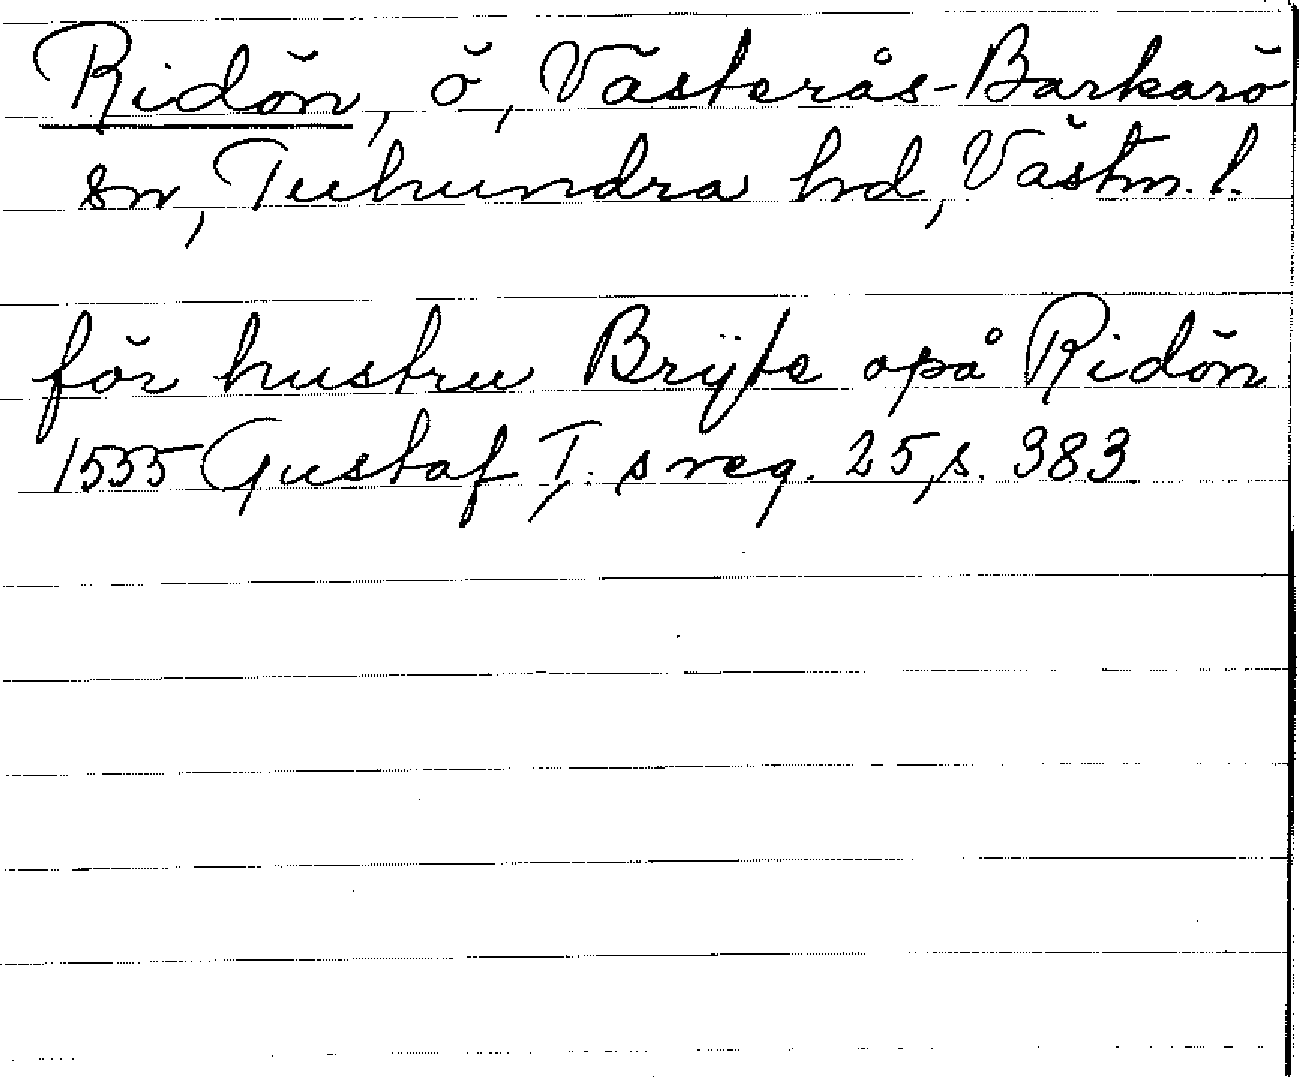 Ridön, ö, Västerås-Barkarö
sn, Tuhundra hd, Västm. l.
för hustru Brÿte opå Ridön
1555 Gustaf I:s reg. 25, s. 383